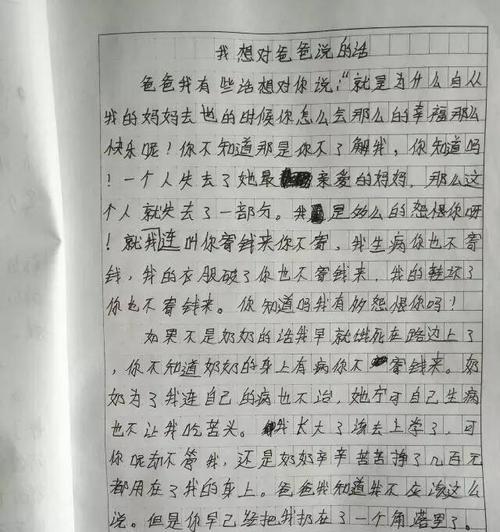 我想对爸爸说的话
爸爸我有些话想对你说:“就是为什么自从
我的妈妈去世的时候你怎么会那么的幸福那么
快乐呢!你不知道那是你不了解我,你知道吗
!一个人失去了她最亲爱的妈妈,那么这
个人就失去了一部分。我是多么的怨恨你呀
!就我连叫你寄钱来你不寄,我生病你也不寄
钱,我的衣服破了你也不寄钱来,我的鞋坏了
你也不寄钱来。你知道吗我有多怨恨你吗!
如果不是奶奶的话我早就饿死在路边上了
,你不知道奶奶的身上有病你不寄钱来。奶
奶为了我连自己的病也不治,她宁可自己生病
也不让我吃苦头。我长大了该去上学了,可
你呢却不管我,还是奶奶辛辛苦苦挣了几百元
都用在了我的身上。爸爸我知道我不应该这么
说。但是你早已经把我扔在了一个角落里了。